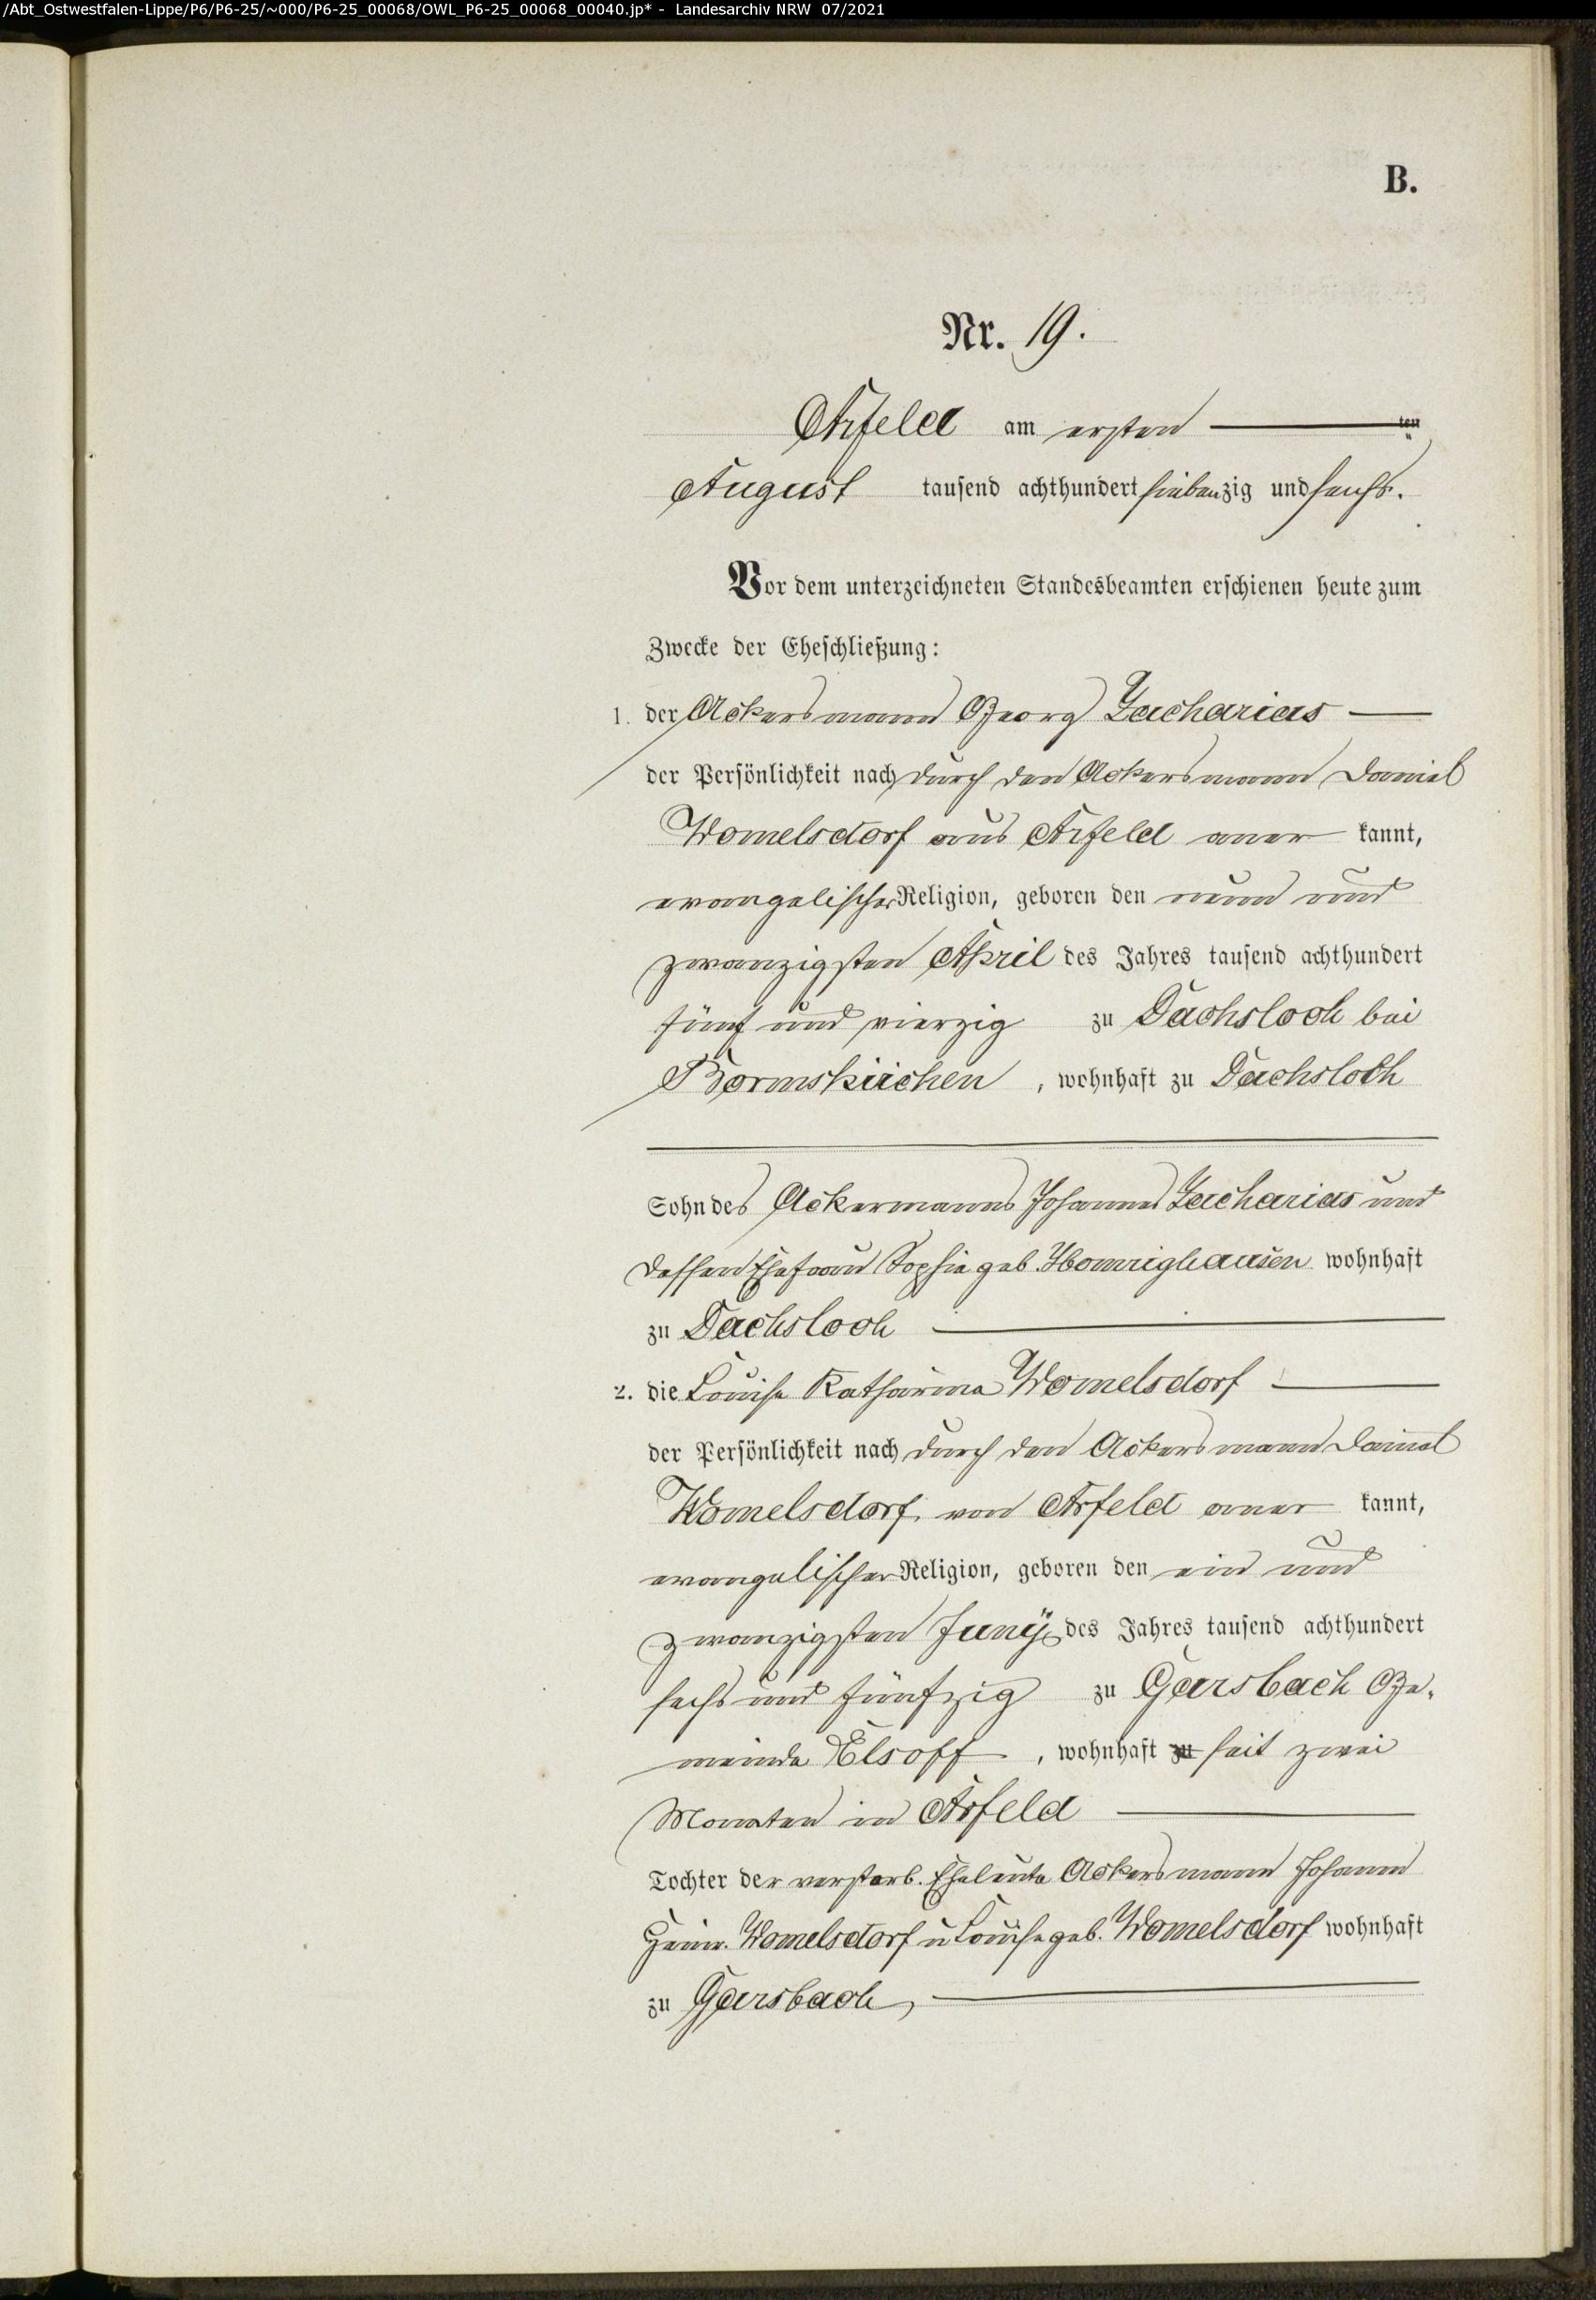 /Abt_Ostwestfalen-Lippe/P6/P6-25/~000/P6-25_00068/OWL_P6-25_00068_00040.jp* - Landesarchiv NRW 07/2021
B.
Nr. 19.
Arfeld am ersten ten
August tausend achthundert siebenzig und sechs.
Vor dem unterzeichneten Standesbeamten erschienen heute zum
Zwecke der Eheschließung:
1. der Ackersmann Georg Zacharias
der Persönlichkeit nach durch den Ackersmann Daniel
Womelsdorf aus Arfeld aner kannt,
evangelischer Religion, geboren den neun und
zwanzigsten April des Jahres tausend achthundert
fünf und vierzig zu Dachsloch bei
Bormskirchen, wohnhaft zu Dachsloch
Sohn des Ackermanns Johannes Zacharias und
dessen Ehefrau Sophie geb. Homrighausen wohnhaft
zu Dachsloch
2. die Louise Katharina Womelsdorf
der Persönlichkeit nach durch den Ackersmann Daniel
Womelsdorf von Arfeld aner kannt,
evangelischer Religion, geboren den ein und
zwanzigsten Juny des Jahres tausend achthundert
sechs und fünfzig zu Garsbach Ge-
meinde Elsoff, wohnhaft zu seit zwei
Monaten in Arfeld
Tochter der verstorb. Eheleute Ackersmann Johann
Heinr. Womelsdorf u Louise geb. Womelsdorf wohnhaft
zu Garsbach,